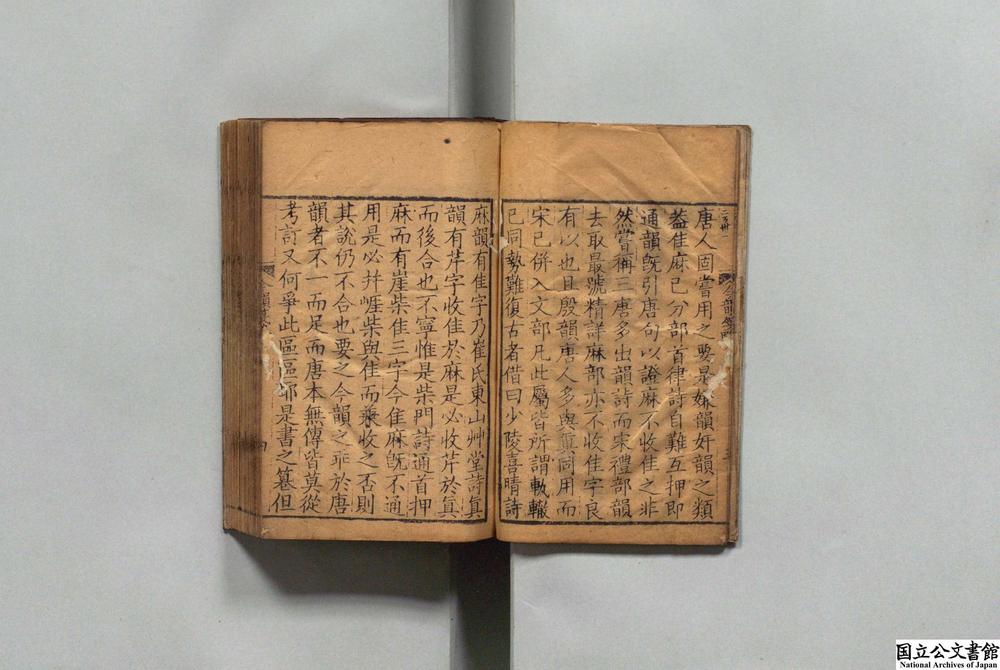 唐人固嘗用之要是嫌韻奸韻之類
葢佳麻已分部首律詩自難互押即
通韻旣引唐句以證麻不收佳之非
然嘗稱三唐多出韻詩而宋禮部韻
去取最號精詳麻部亦不收佳字良
有以也且殷韻唐人多與眞同用而
宋已併入文部凡此屬皆所謂軌轍
已同勢難復古者借曰少陵喜晴詩
麻韻有佳字乃崔氏東山艸堂詩眞
韻有芹字收佳於麻是必收芹於眞
而後合也不寧惟是柴門詩通首押
麻而有崖柴佳三字今佳麻旣不通
用是必幷崕柴與佳而乗收之否則
其說仍不合也要之今韻之乖於唐
韻者不一而足而唐本無傳皆莫從
考訂又何爭此區區耶是書之簒但
国立公文書館
National Archives of Japan